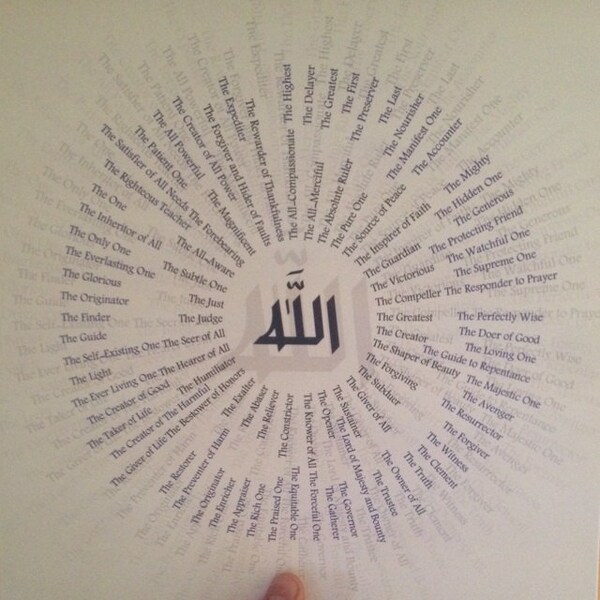 الله
The All-Compassionate
The Highest
The Delayer
The All-Merciful
The Greatest
The Absolute Ruler
The First
The Preserver
The Pure One
The Last
The Source of Peace
The Nourisher
The Manifest One
The Inspirer of Faith
The Accounter
The Guardian
The Mighty
The Hidden One
The Victorious
The Generous
The Protecting Friend
The Compeller
The Watchful One
The Supreme One
The Responder to Prayer
The Greatest
The Perfectly Wise
The Creator
The Doer of Good
The Loving One
The Shaper of Beauty
The Guide to Repentance
The Majestic One
The Forgiving
The Avenger
The Resurrector
The Subduer
The Forgiver
The Witness
The Giver of All
The Clement
The Truth
The Owner of All
The Sustainer
The Trustee
The Lord of Majesty and Bounty
The Opener
The Governor
The Gatherer
The Knower of All
The Forceful One
The Constrictor
The Equitable One
The Praised One
The Reliever
The Rich One
The Appraiser
The Abaser
The Enricher
The Originator
The Exalter
The Preventer of Harm
The Restorer
The Humiliator
The Bestower of Honors
The Giver of Life
The Creator of The Harmful
The Hearer of All
The Taker of Life
The Creator of Good
The Ever Living One
The Seer of All
The Light
The Self-Existing One
The Judge
The Guide
The Finder
The Just
The Originator
The Glorious
The Subtle One
The Everlasting One
The Only One
The All-Aware
The Inheritor of All
The One
The Forebearing
The Righteous Teacher
The Satisfier of All Needs
The Magnificent
The Patient One
The All Powerful
The Creator of All Power
The Forgiver and Hider of Faults
The Expediter
The Rewarder of Thankfulness